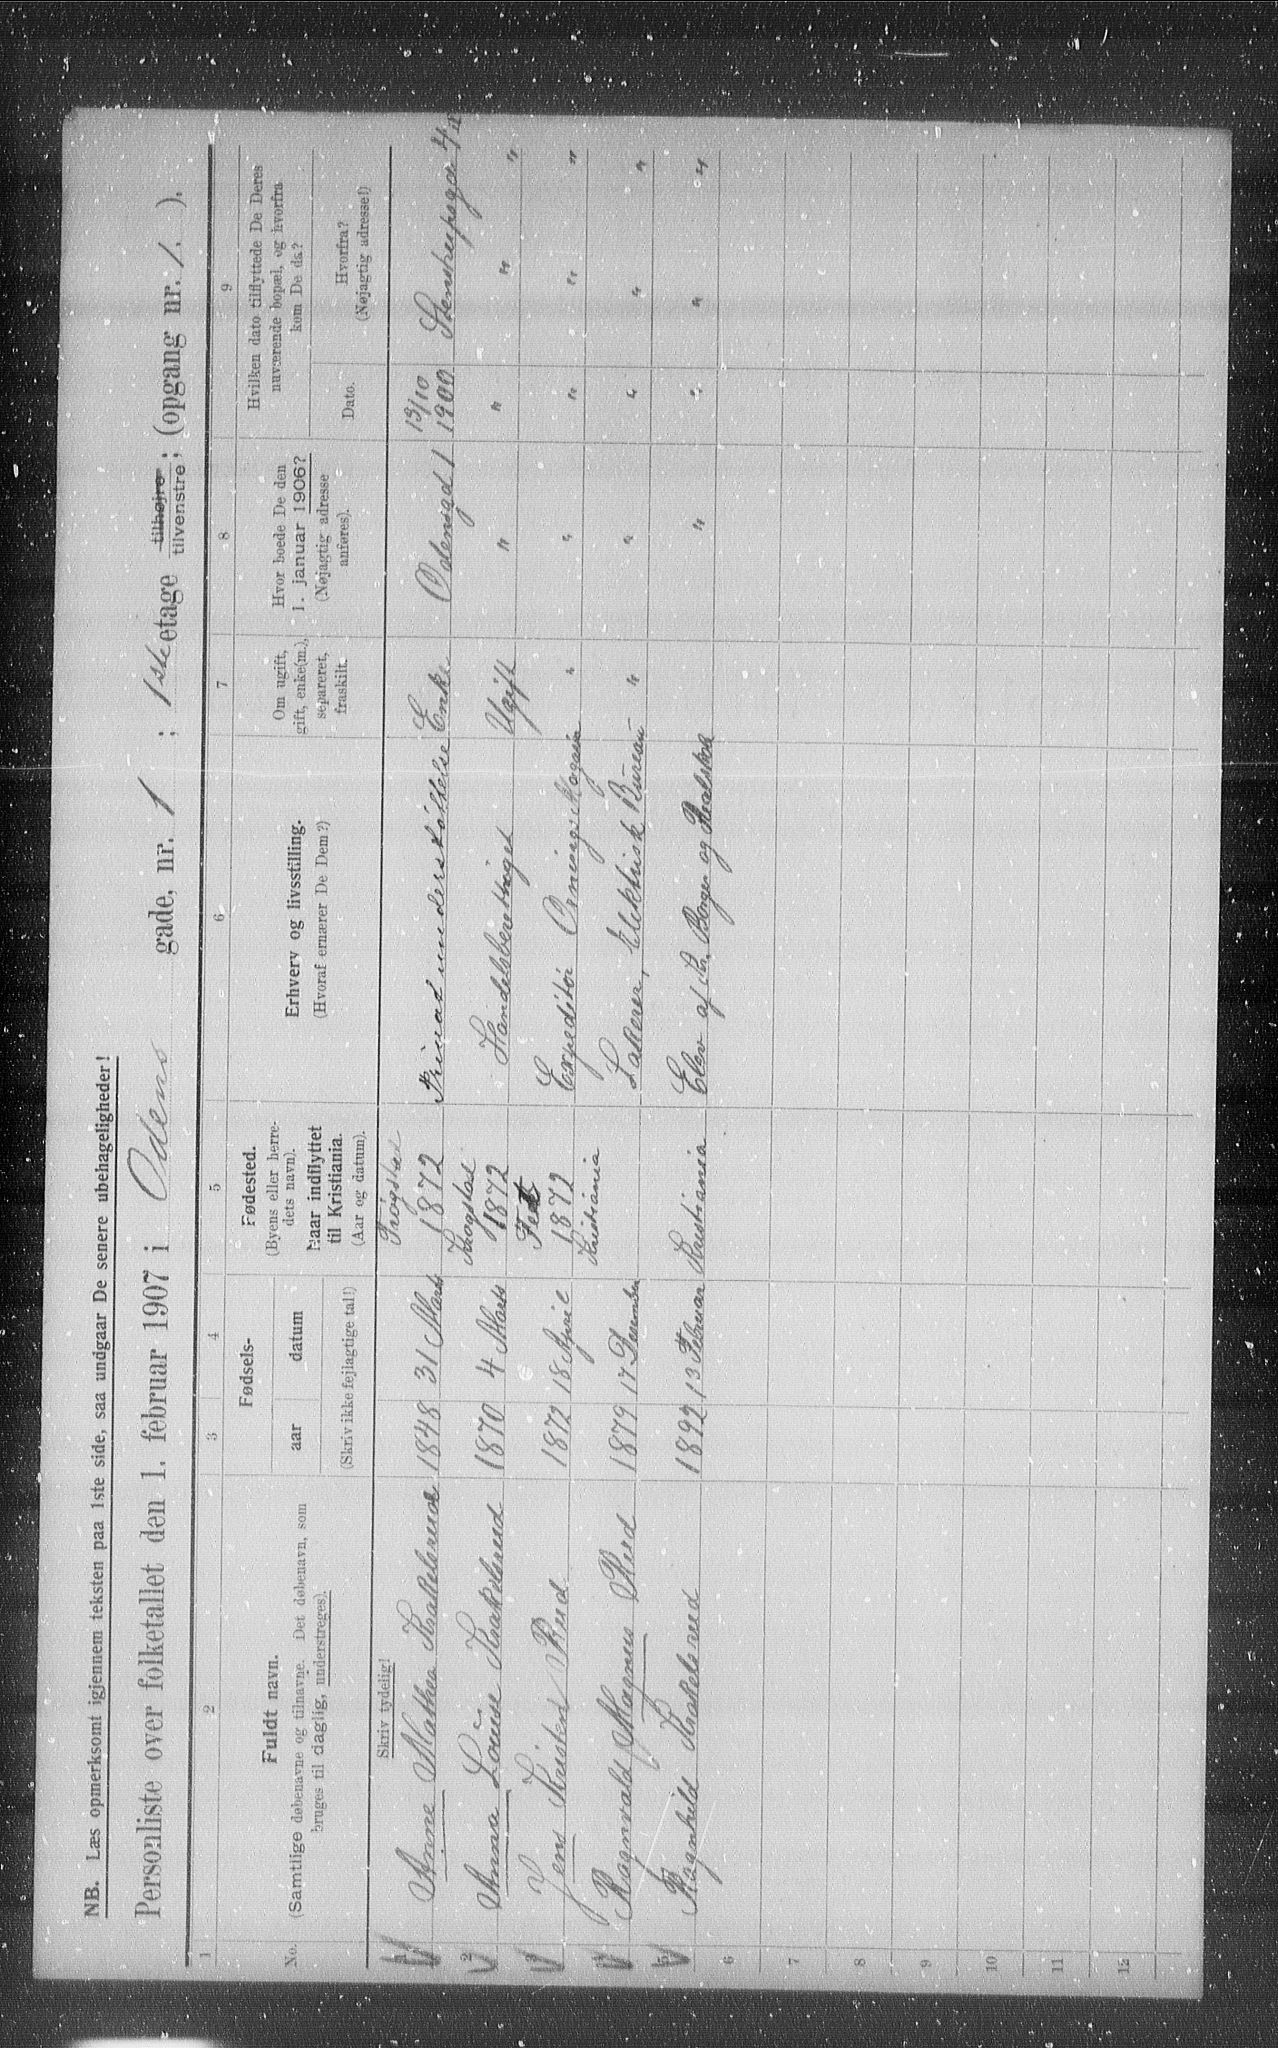 NB. Læs opmerksomt igjennem teksten paa 1ste side, saa undgaar De senere ubehageligheder!
Personliste over folketallet den 1. februar 1907 i Odens gade, nr. 1; 1ste etage tilhøjre tilvenstre; (opgang nr. 1.).
1 2 3 4 5 6 7 8 9
No.
Fuldt navn.
(Samtlige døbenavne og tilnavne. Det døbenavn, som
bruges til daglig, understreges).
Fødsels-
aar datum
(Skriv ikke fejlagtige tal!)
Fødested.
(Byens eller herre-
dets navn).
Naar indflyttet
til Kristiania.
(Aar og datum).
Erhverv og livsstilling.
(Hvoraf ernærer De Dem?)
Om ugift,
gift, enke(m.),
separeret,
fraskilt.
Hvor boede De den
1. januar 1906?
(Nøjagtig adresse
anføres).
Hvilken dato tilflyttede De Deres
nuværende bopæl, og hvorfra
kom De da?
Dato.
Hvorfra?
(Nøjagtig adresse!)
Skriv tydelig!
1 Anne Mathea Krakelsrud 1848 31 Marts Trøgstad 1872 Privat understøttelse Enke Odensgd 1 19/10 1900 Stenstrupsgd
2 Anna Louise Krakelsrud 1870 4 Marts Trøgstad 1872 Handelsberettiget Ugift " " " "
3 Jens Kristen Rud 1872 18 April Fet 1872 Expeditør Ovnings Magasin " " " " "
4 Ragnvald Magnus Rud 1879 17 December Kristiania Lakerer, Elektrisk Bureau " " " " "
5 Ragnhild Krakelsrud 1892 13 Februar Kristiania Elev af Kr. Borger og Realskole " " " "
6
7
8
9
10
11
12